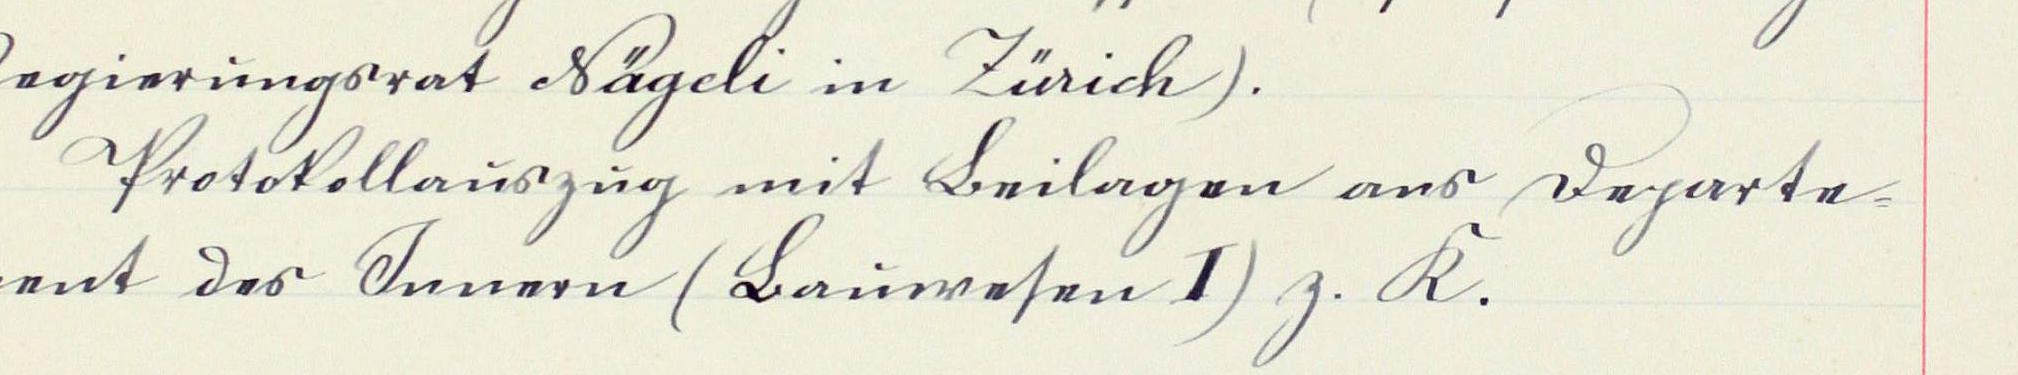 Regierungsrat Nägeli in Zürich).
Protokollauszug mit Beilagen ans Departe-
ment des Innern (Bauwesen I) z. K.